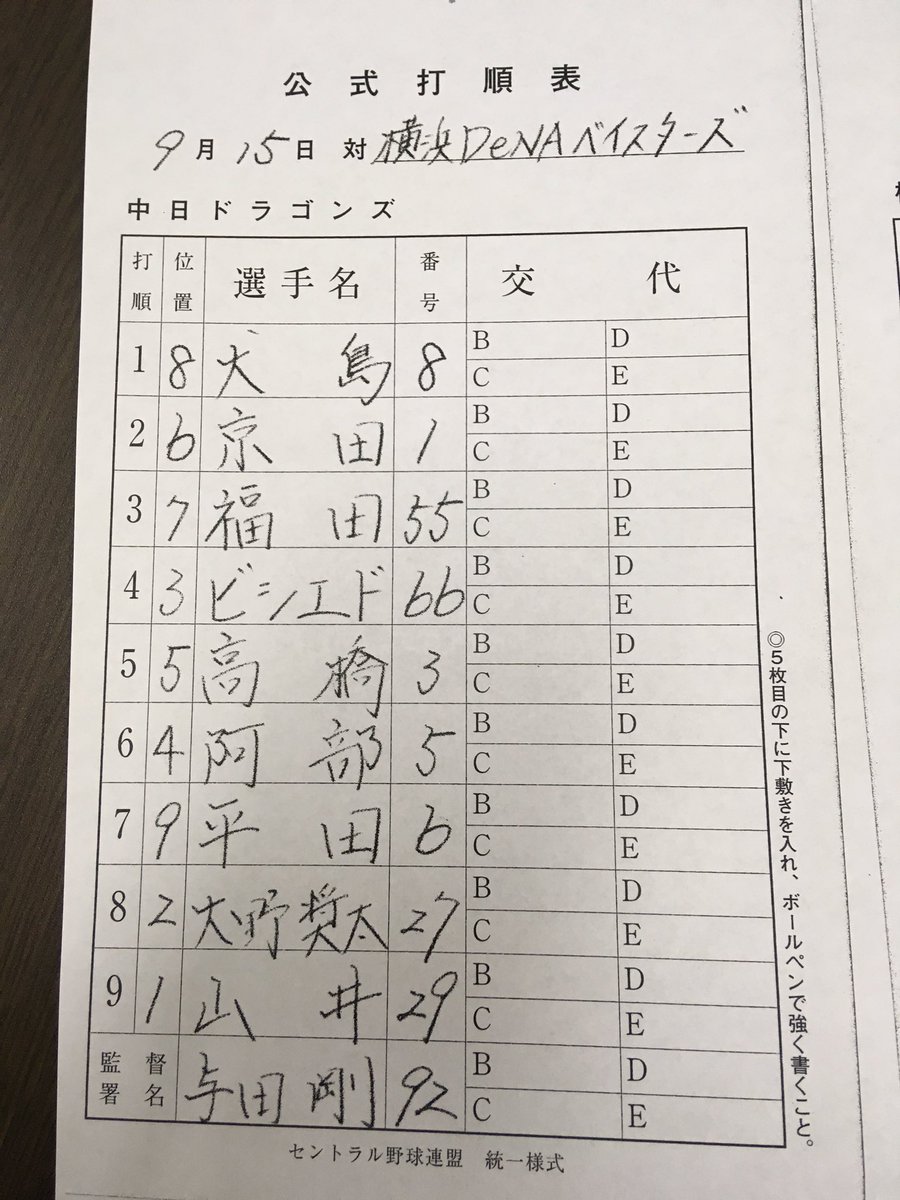 公式打順表
9月15日 対 横浜DeNAベイスターズ
中日ドラゴンズ
打順 位置 選手名 番号 交代
1 8 大島 8 B D C E
2 6 京田 1 B D C E
3 7 福田 55 B D C E
4 3 ビシエド 66 B D C E
5 5 高橋 3 B D C E
6 4 阿部 5 B D C E
7 9 平田 6 B D C E
8 2 大野奨太 27 B D C E
9 1 山井 29 B D C E
監督署名 与田剛 92 B D C E
セントラル野球連盟 統一様式
◎5枚目の下に下敷きを入れ、ボールペンで強く書くこと。